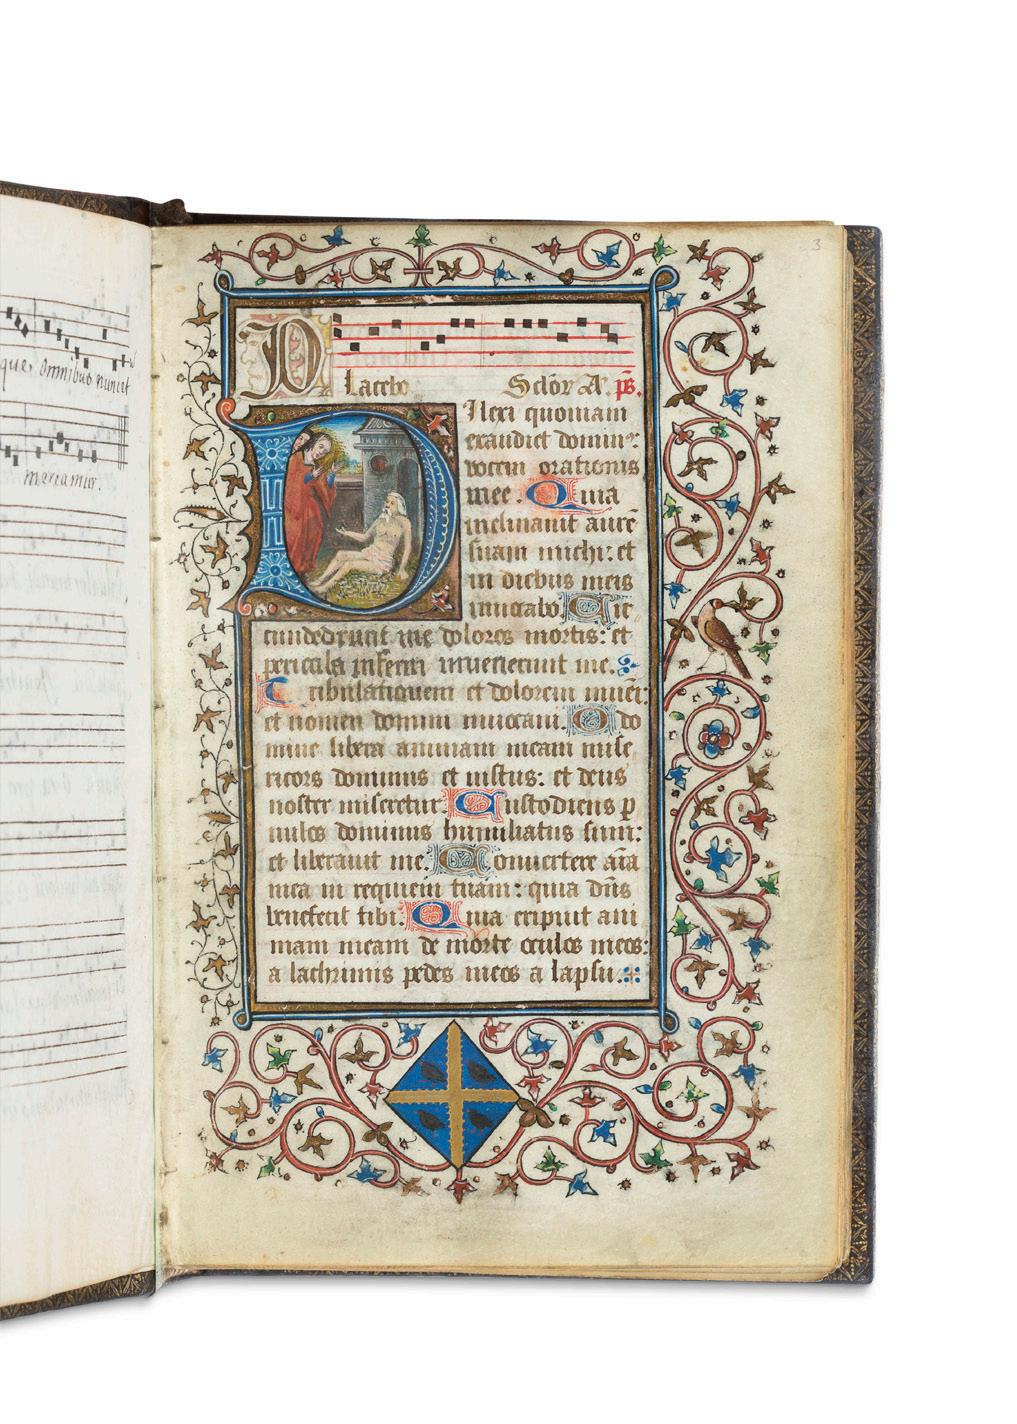 ques omnibus nunciet
meriamur.
3
Placebo Sclor A. ps.
Dilexi quoniam
exaudiet domin
vocem orationis
mee. Quia
inclinavit aurē
suam michi: et
in diebus meis
invocabo Cir
cundederunt me dolores mortis: et
pericula inferni invenerunt me.
Tribulationem et dolorem inveī:
et nomen domini invocavi. O do
mine libera animam meam mise
ricors dominus et iustus: et deus
noster miseretur. Custodiens p
vulos dominus humiliatus sum:
et liberavit me. Convertere aīa
mea in requiem tuam: quia dn̄s
benefecit tibi. Quia eripuit ani
mam meam de morte oculos meos:
a lachrimis pedes meos a lapsu.